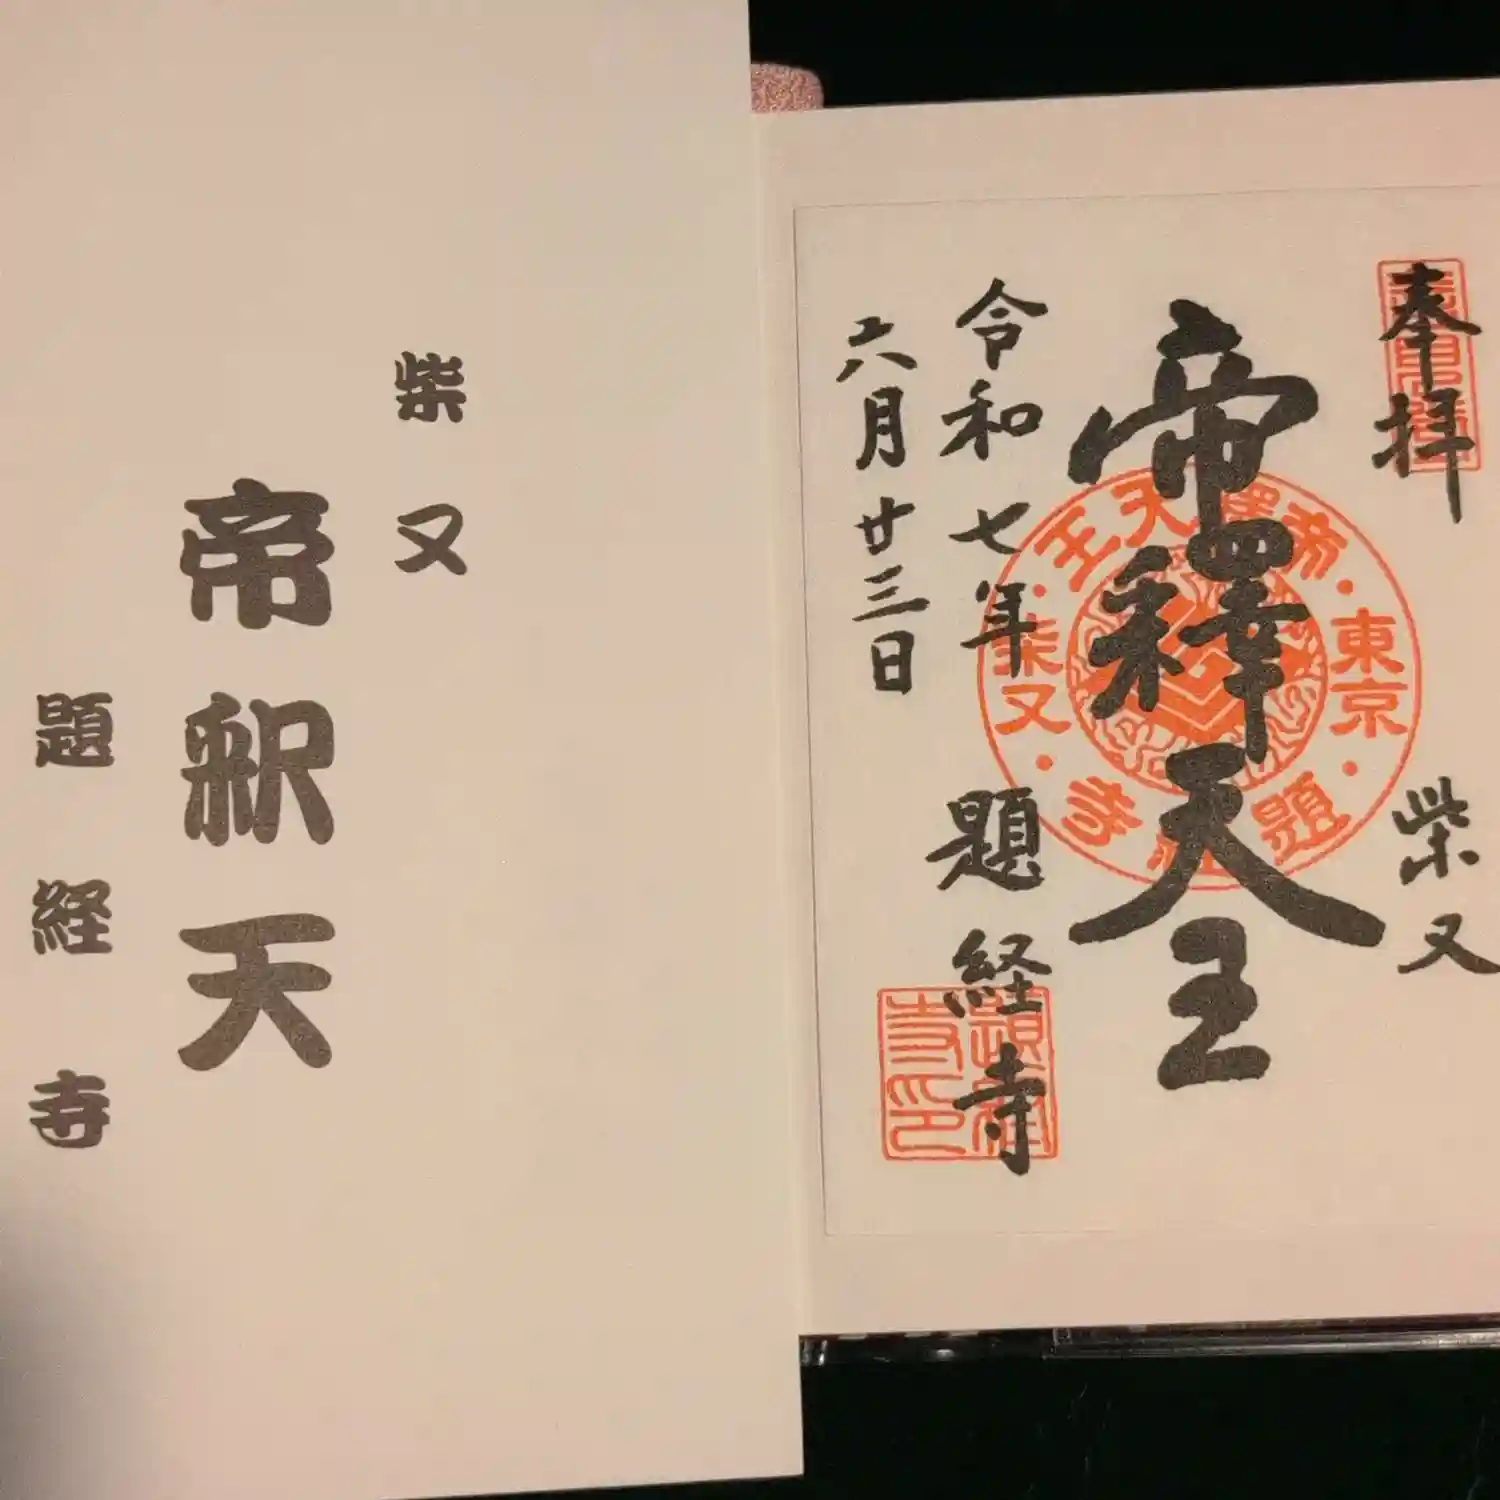 柴又
帝釈天
題経寺
奉拝
柴又
帝釋天王
令和七年
六月廿三日
題経寺
帝釋天王
東京
柴又
題経寺